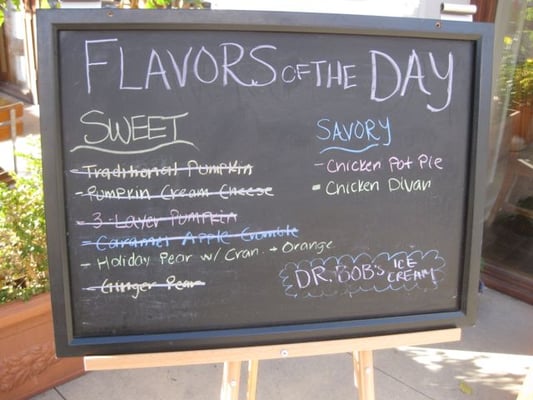 FLAVORS OF THE DAY
SWEET
- Traditional Pumpkin
- Pumpkin Cream Cheese
- 3-Layer Pumpkin
- Caramel Apple Crumble
- Holiday Pear w/ Cran. + Orange
- Ginger Pear
SAVORY
- Chicken Pot Pie
- Chicken Divan
DR. BOB'S ICE CREAM